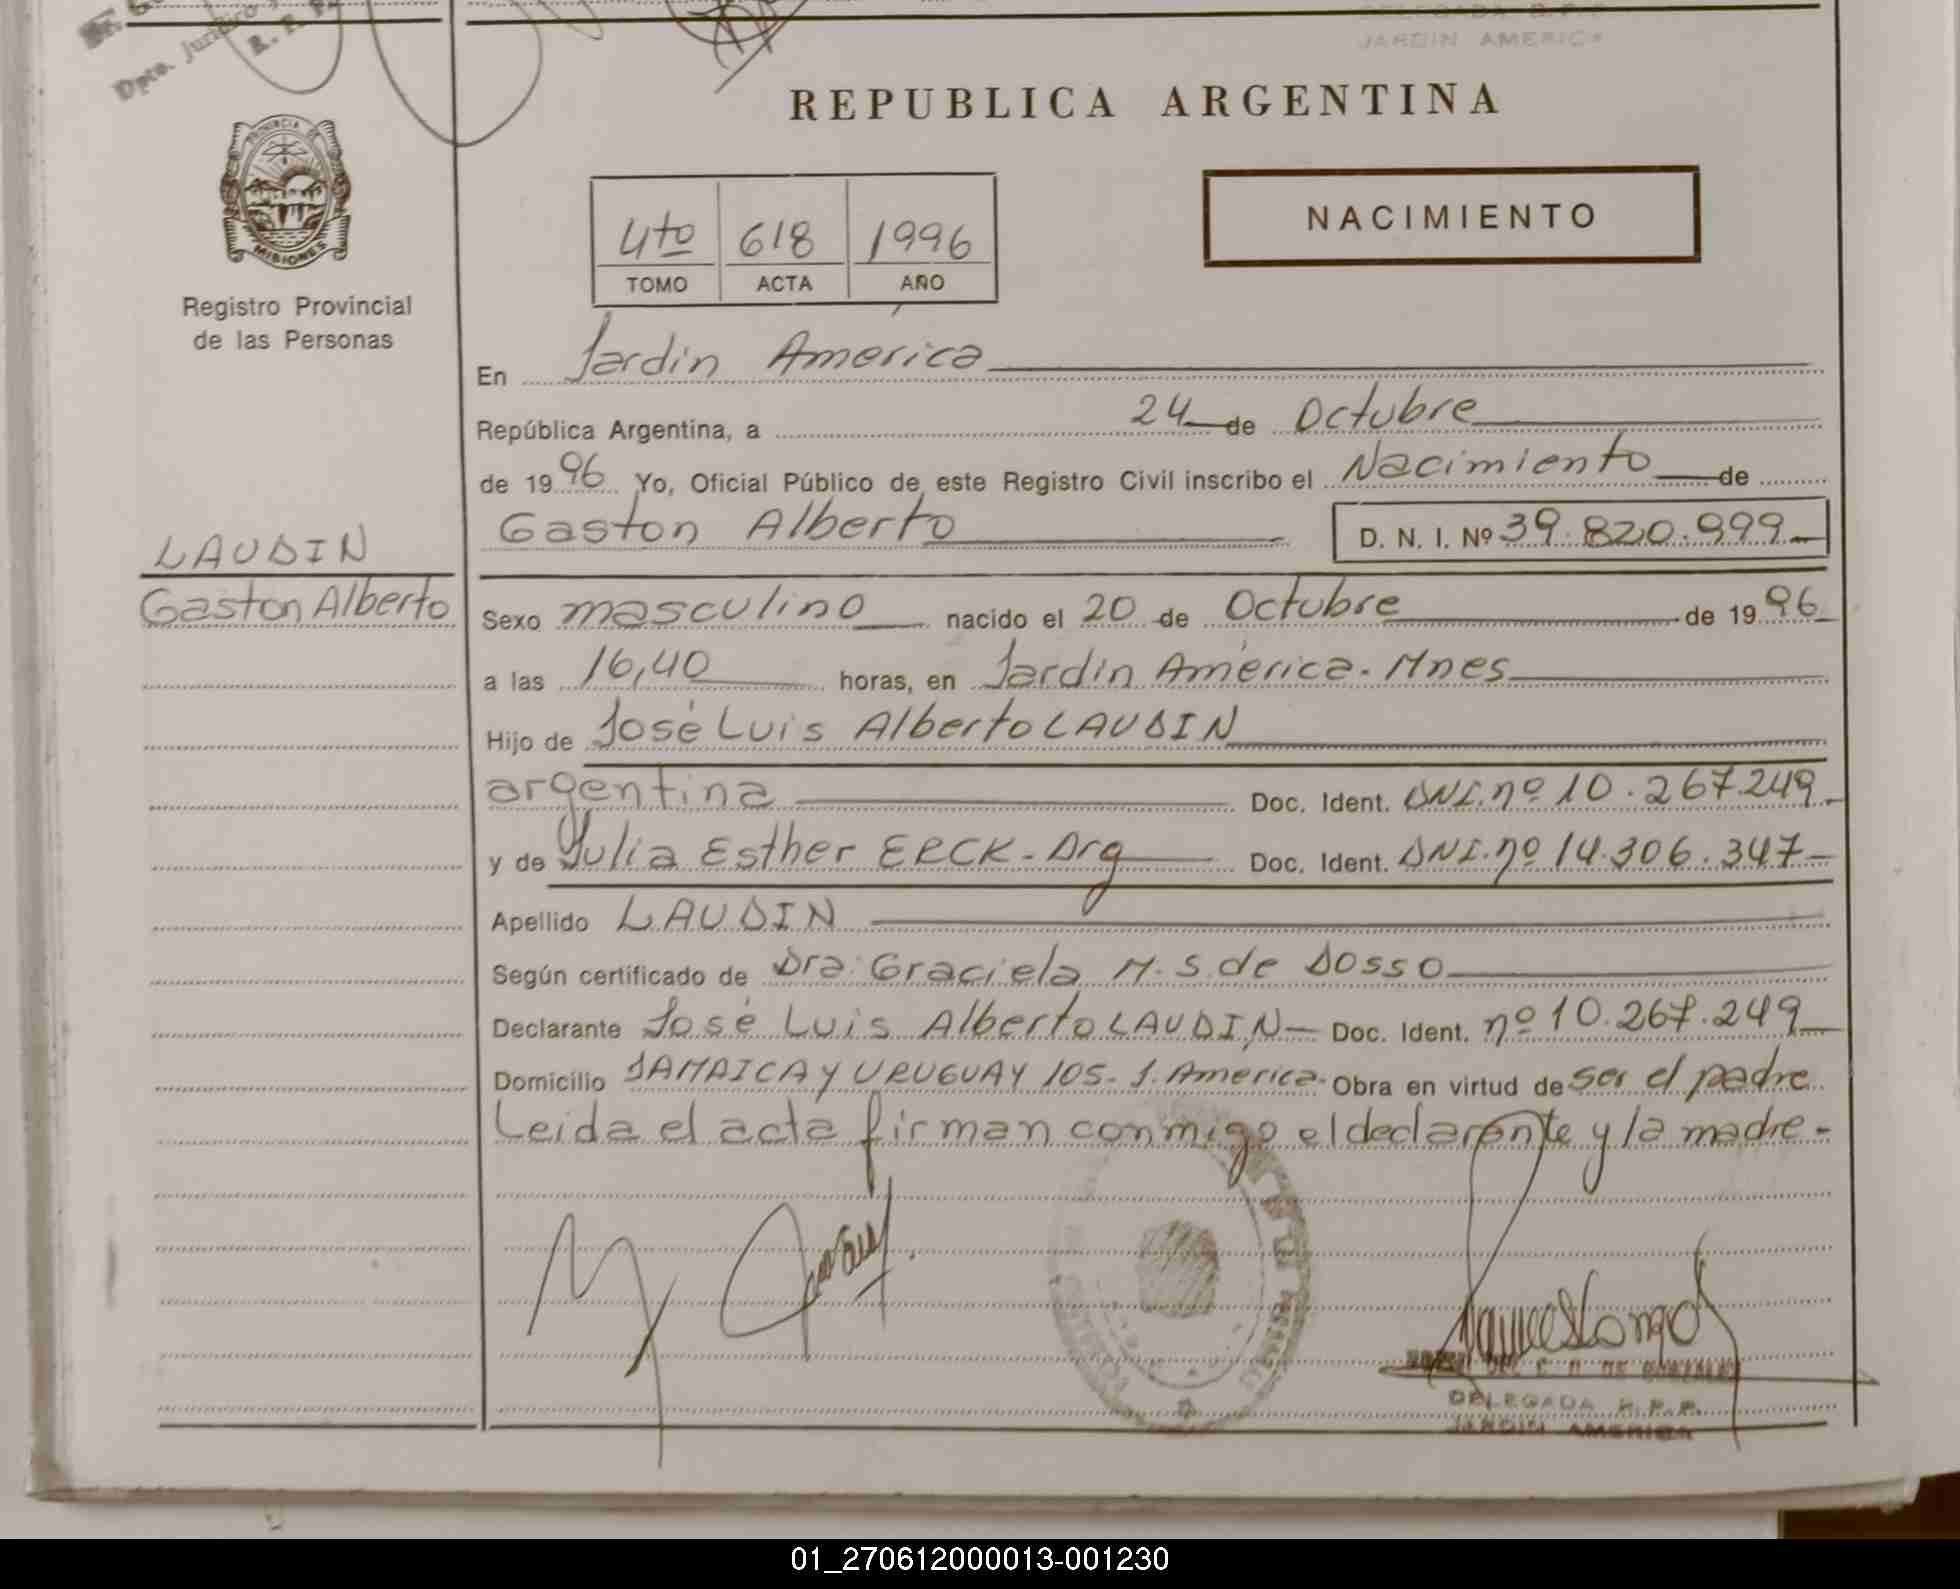 Dpto. Juridico
R. P. P.
JARDIN AMERICA
REPUBLICA ARGENTINA
PROVINCIA DE
MISIONES
Registro Provincial
de las Personas
4to 618 1996
TOMO ACTA AÑO
NACIMIENTO
En Jardín América
República Argentina, a 24 de Octubre
de 1996 Yo, Oficial Público de este Registro Civil inscribo el Nacimiento de
Gaston Alberto D. N. I. Nº 39.820.999
LAUDIN
Gaston Alberto
Sexo masculino nacido el 20 de Octubre de 1996
a las 16,40 horas, en Jardín América - Mnes
Hijo de José Luis Alberto LAUDIN
argentina Doc. Ident. DNI. nº 10.267.249
y de Julia Esther ERCK - Arg Doc. Ident. DNI. nº 14.306.347
Apellido LAUDIN
Según certificado de Dra. Graciela M. S. de DOSSO
Declarante José Luis Alberto LAUDIN Doc. Ident. nº 10.267.249
Domicilio JAMAICA y URUGUAY 105 - J. America - Obra en virtud de ser el padre
Leida el acta firman conmigo el declarante y la madre -
DELEGADA R.P.P.
JARDIN AMERICA
01_270612000013-001230